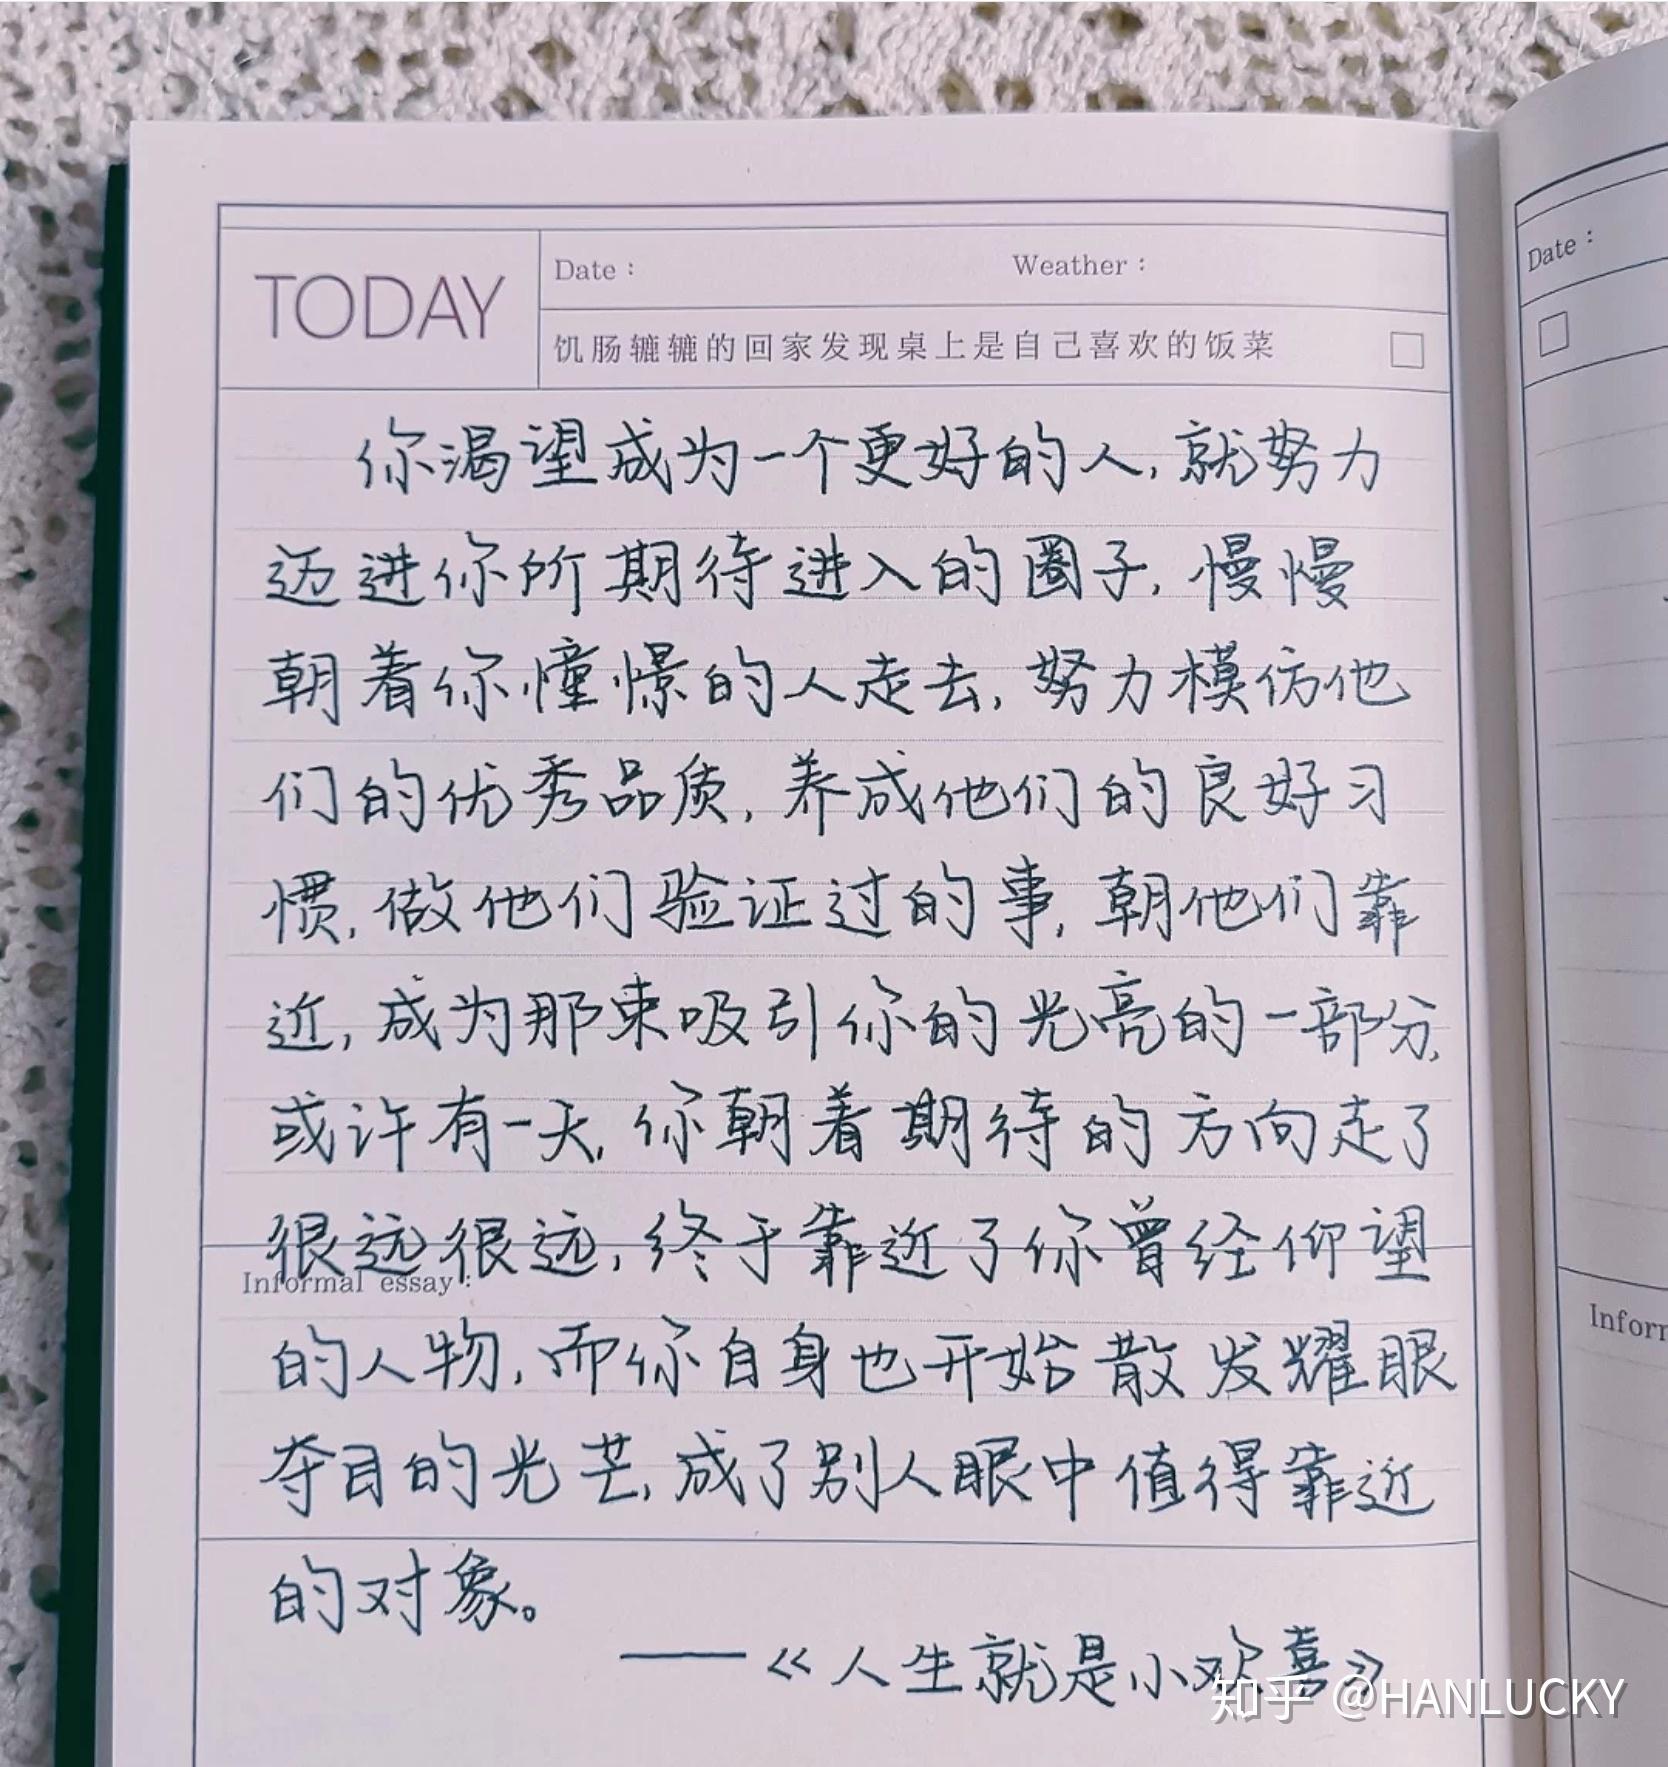 TODAY
Date：
Weather：
饥肠辘辘的回家发现桌上是自己喜欢的饭菜
你渴望成为一个更好的人,就努力
迈进你所期待进入的圈子,慢慢
朝着你憧憬的人走去,努力模仿他
们的优秀品质,养成他们的良好习
惯,做他们验证过的事,朝他们靠
近,成为那束吸引你的光亮的一部分,
或许有一天,你朝着期待的方向走了
很远很远,终于靠近了你曾经仰望
Informal essay：
的人物,而你自身也开始散发耀眼
夺目的光芒,成了别人眼中值得靠近
的对象。
——《人生就是小欢喜》
知乎 @HANLUCKY
Date：
Inform